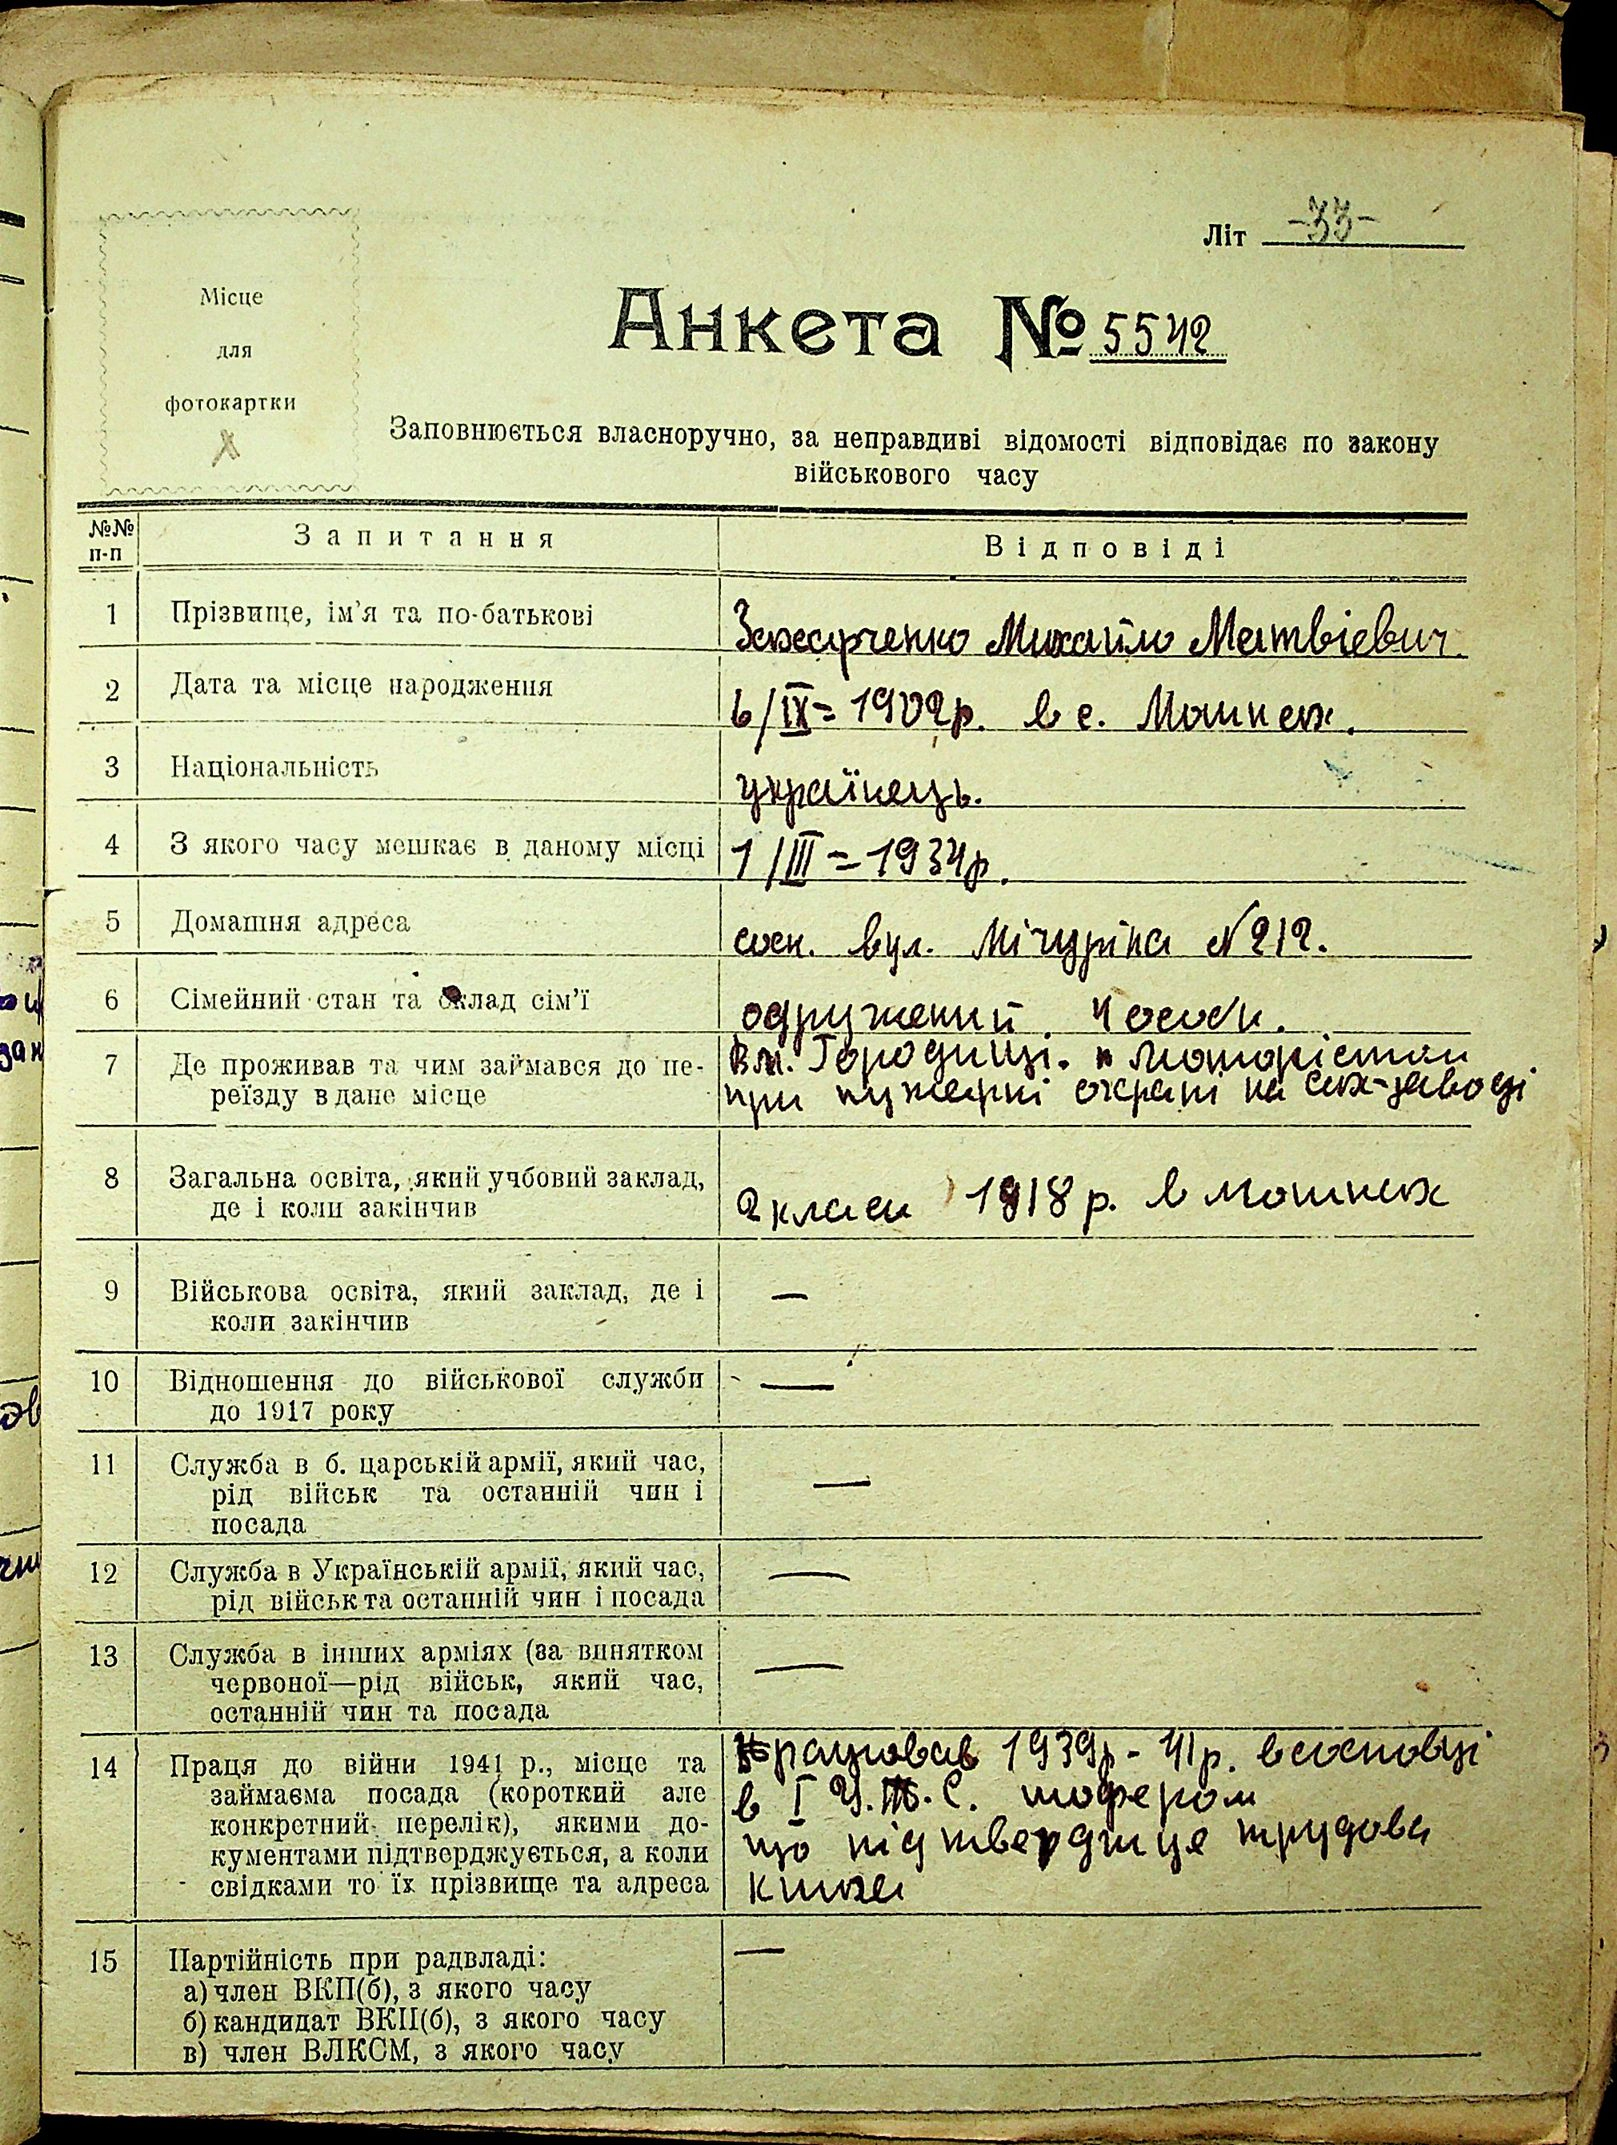 Літ -33-
Місце
для
фотокартки
Анкета № 5542
Заповнюється власноручно, за неправдиві відомості відповідає по закону
військового часу
№№ п-п
Запитання
Відповіді
1 Прізвище, ім'я та по-батькові
Захарченко Михайло Матвієвич.
2 Дата та місце народження
6/IX=1902р. в с. Мошнах.
3 Національність
українець.
4 З якого часу мешкає в даному місці
1/III=1934р.
5 Домашня адреса
сосн. вул. Мічуріна №212.
6 Сімейний стан та склад сім'ї
одружений. 4 особи.
7 Де проживав та чим займався до пе-
реїзду в дане місце
в м. Городищі. Мотористом
при пужарні охрані на сах-заводі
8 Загальна освіта, який учбовий заклад,
де і коли закінчив
2 класи 1918 р. в мошнах
9 Військова освіта, який заклад, де і
коли закінчив
—
10 Відношення до військової служби
до 1917 року
—
11 Служба в б. царській армії, який час,
рід військ та останній чин і
посада
—
12 Служба в Українській армії, який час,
рід військ та останній чин і посада
—
13 Служба в інших арміях (за винятком
червоної—рід військ, який час,
останній чин та посада
—
14 Праця до війни 1941 р., місце та
займаєма посада (короткий але
конкретний перелік), якими до-
кументами підтверджується, а коли
свідками то їх прізвище та адреса
працював 1939р-41р. в сосновці
в I шофером
що підтверджуце трудова
книжа
15 Партійність при радвладі:
а) член ВКП(б), з якого часу
б) кандидат ВКП(б), з якого часу
в) член ВЛКСМ, з якого часу
—